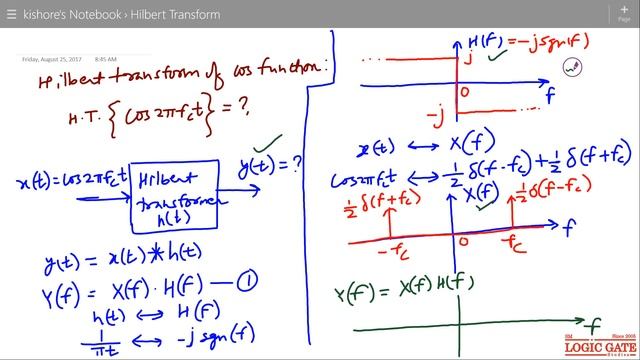 kishore's Notebook › Hilbert Transform
Page
Friday, August 25, 2017 8:45 AM
Hilbert transform of cos function:
H.T. {cos2πf_c t} = ?
x(t)=cos2πf_c t
Hilbert
transformer
h(t)
y(t)=?
y(t) = x(t) * h(t)
Y(f) = X(f) · H(f) — ①
h(t) ↔ H(f)
1/πt ↔ -j sgn(f)
H(f) = -j sgn(f)
j
0
f
-j
x(t) ↔ X(f)
cos2πf_c t ↔ 1/2 δ(f-f_c) + 1/2 δ(f+f_c)
1/2 δ(f+f_c)
X(f)
1/2 δ(f-f_c)
-f_c
0
f_c
f
Y(f) = X(f) H(f)
f
Since 2005
LOGIC GATE